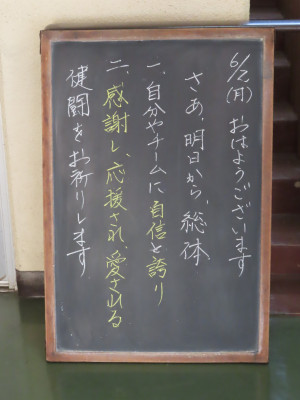 6/2(月) おはようございます
さあ、明日から、総体
一、自分やチームに自信と誇り
二、感謝し、応援され、愛される
健闘をお祈りします